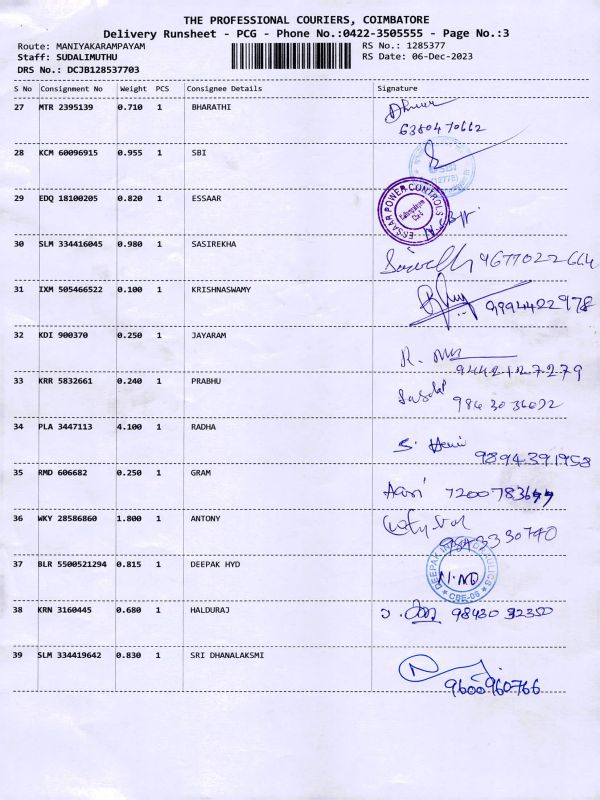 THE PROFESSIONAL COURIERS, COIMBATORE
Delivery Runsheet - PCG - Phone No.:0422-3505555 - Page No.:3
Route: MANIYAKARAMPAYAM RS No.: 1285377
Staff: SUDALIMUTHU RS Date: 06-Dec-2023
DRS No.: DCJB128537703
S No Consignment No Weight PCS Consignee Details Signature
27 MTR 2395139 0.710 1 BHARATHI
6380470662
28 KCM 60096915 0.955 1 SBI
29 EDQ 18100205 0.820 1 ESSAAR
ESSAAR POWER CONTROLS
30 SLM 334416045 0.980 1 SASIREKHA
9677022664
31 IXM 505466522 0.100 1 KRISHNASWAMY
9994422978
32 KDI 900370 0.250 1 JAYARAM
9442127279
33 KRR 5832661 0.240 1 PRABHU
34 PLA 3447113 4.100 1 RADHA
9894391958
35 RMD 606682 0.250 1 GRAM
36 WKY 28586860 1.800 1 ANTONY
37 BLR 5500521294 0.815 1 DEEPAK HYD
DEEPAK CBE-06
38 KRN 3160445 0.680 1 HALDURAJ
39 SLM 334419642 0.830 1 SRI DHANALAKSMI
9600960766